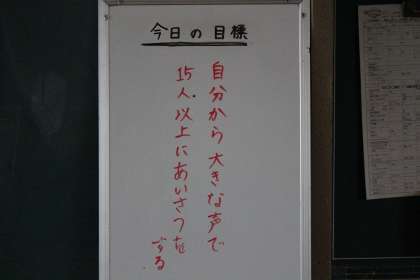 今日の目標
自分から大きな声で
15人以上にあいさつを
する